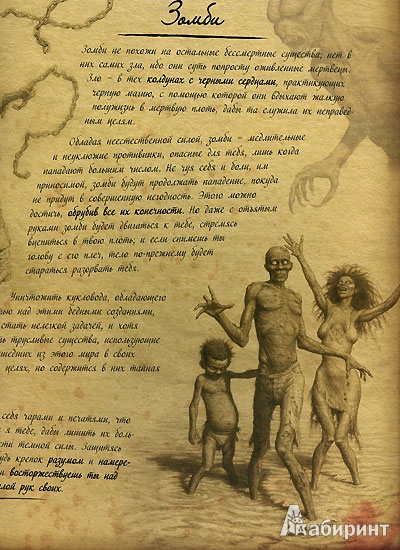 Зомби
Зомби не похожи на остальные бессмертные существа; нет в
них самих зла, ибо они суть попросту оживленные мертвецы.
Зло – в тех колдунах с черными сердцами, практикующих
черную магию, с помощью которой они вдыхают жалкую
полужизнь в мертвую плоть, дабы та служила их неправед-
ным целям.
Обладая неестественной силой, зомби – медлительные
и неуклюжие противники, опасные для тебя, лишь когда
нападают большим числом. Не чуя себя и боли, им
приносимой, зомби будут продолжать нападение, покуда
не придут в совершенную негодность. Этого можно
достичь, обрубив все их конечности. Но даже с отъятым
руками зомби будет двигаться к тебе, стремясь
вцепиться в твою плоть; и если снимешь ты
голову с его плеч, тело по-прежнему будет
стараться разорвать тебя.
Уничтожить кукловода, обладающего
ью над этими бедными созданиями,
стать нелегкой задачей, и хотя
ть трусливые существа, использующие
шедших из этого мира в своих
целях, но содержится в них тайная
себя чарами и печатями, что
я тебе, дабы лишить их боль-
сти темной силы. Защитясь
удь крепок разумом и намере-
и восторжествуешь ты над
лой рук своих.
Лабиринт